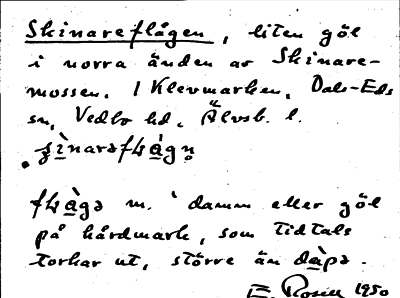 Skinareflågen, liten göl
i norra änden av Skinare-
mossen. I Klevmarken, Dals-Eds
sn, Vedbo hd, Älvsb. l.
ʂìnarəfɫàgn̥

fɫàgə m. ` damm eller göl
på hårdmark, som tidtals
torkar ut, större än dàpə.
E. Rosell 1950